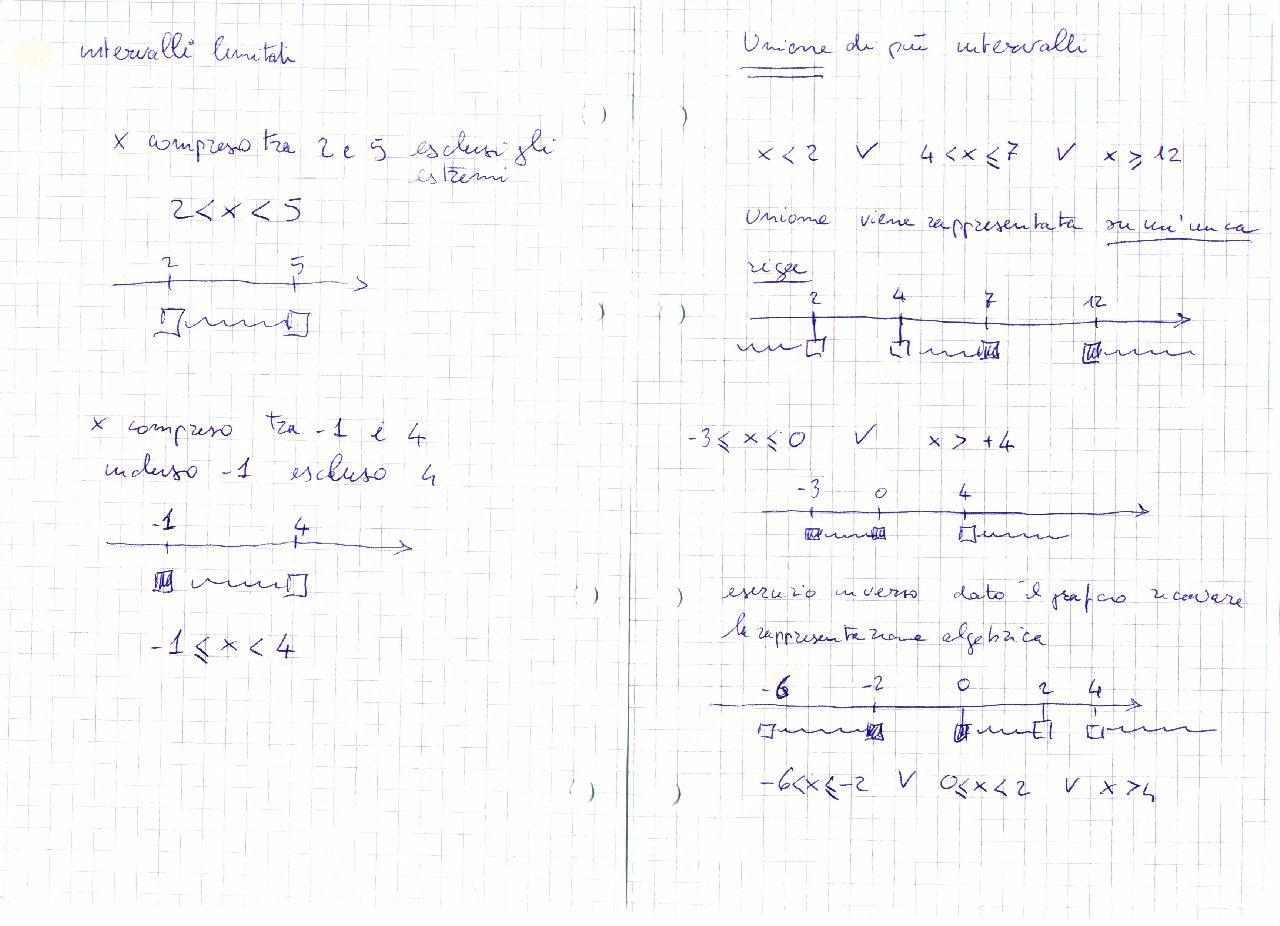 intervalli limitati
x compreso tra 2 e 5 esclusi gli
estremi
2 < x < 5
2 5
x compreso tra -1 e 4
incluso -1 escluso 4
-1 4
-1 ⩽ x < 4
Unione di più intervalli
x < 2 ∨ 4 < x ⩽ 7 ∨ x ⩾ 12
Unione viene rappresentata su un'unica
riga
2 4 7 12
-3 ⩽ x ⩽ 0 ∨ x > +4
-3 0 4
esercizio inverso dato il grafico ricavare
la rappresentazione algebrica
-6 -2 0 2 4
-6 < x ⩽ -2 ∨ 0 ⩽ x < 2 ∨ x > 4